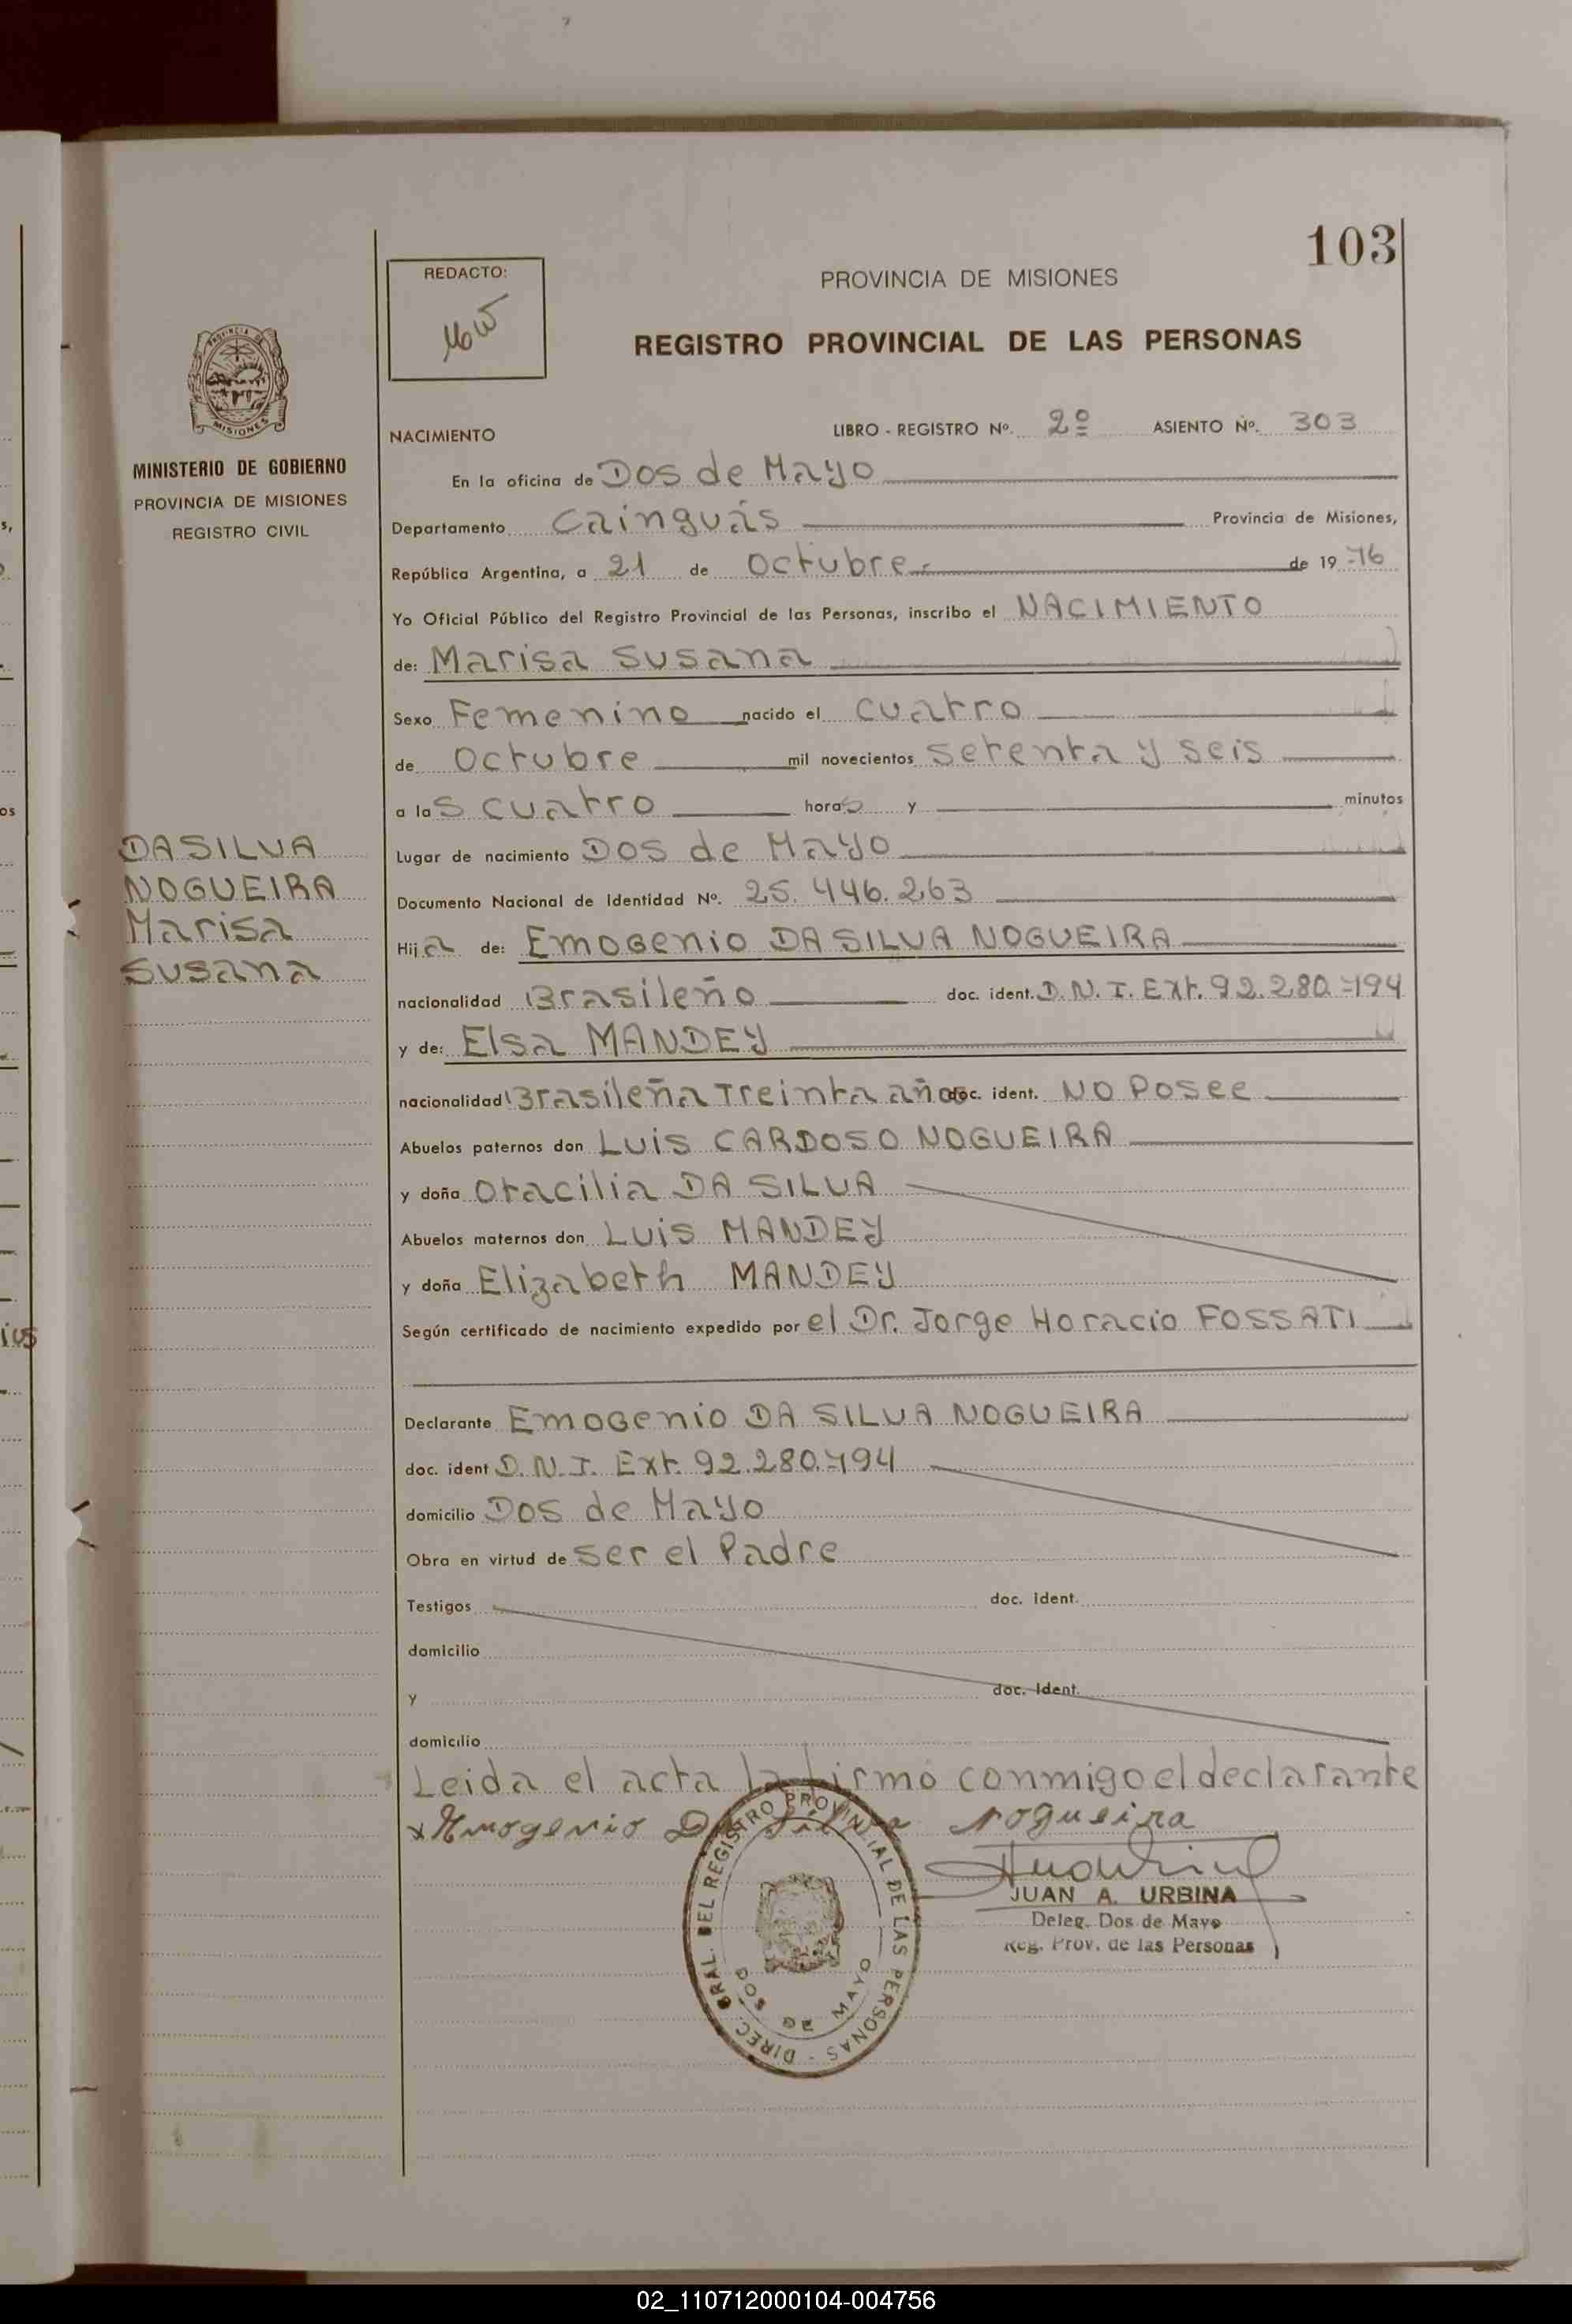 103
REDACTO:
PROVINCIA DE MISIONES
REGISTRO PROVINCIAL DE LAS PERSONAS
PROVINCIA DE
MISIONES
MINISTERIO DE GOBIERNO
PROVINCIA DE MISIONES
REGISTRO CIVIL
NACIMIENTO LIBRO - REGISTRO Nº. 2º ASIENTO Nº. 303
En la oficina de Dos de Mayo
Departamento Cainguás Provincia de Misiones,
República Argentina, a 21 de Octubre.- de 19 76
Yo Oficial Público del Registro Provincial de las Personas, inscribo el NACIMIENTO
de: Marisa Susana
Sexo Femenino nacido el cuatro
de Octubre mil novecientos setenta y seis
a las cuatro horas y minutos
DA SILVA
NOGUEIRA
Marisa
Susana
Lugar de nacimiento Dos de Mayo
Documento Nacional de Identidad Nº. 25.446.263
Hija de: Emogenio DA SILVA NOGUEIRA
nacionalidad Brasileño doc. ident. D.N.I. Ext. 92.280.794
y de: Elsa MANDEY
nacionalidad Brasileña Treinta años doc. ident. NO Posee
Abuelos paternos don Luis CARDOSO NOGUEIRA
y doña Otacilia DA SILVA
Abuelos maternos don Luis MANDEY
y doña Elizabeth MANDEY
Según certificado de nacimiento expedido por el Dr. Jorge Horacio FOSSATI
Declarante Emogenio DA SILVA NOGUEIRA
doc. ident D.N.I. Ext. 92.280.794
domicilio Dos de Mayo
Obra en virtud de ser el Padre
Testigos doc. ident.
domicilio
y doc. Ident.
domicilio
Leida el acta la firmó conmigo el declarante
x Emogenio Da Silva Nogueira
DIREC. GRAL. DEL REGISTRO PROVINCIAL DE LAS PERSONAS -
DOS DE MAYO
JUAN A. URBINA
Deleg. Dos de Mayo
Reg. Prov. de las Personas
02_110712000104-004756